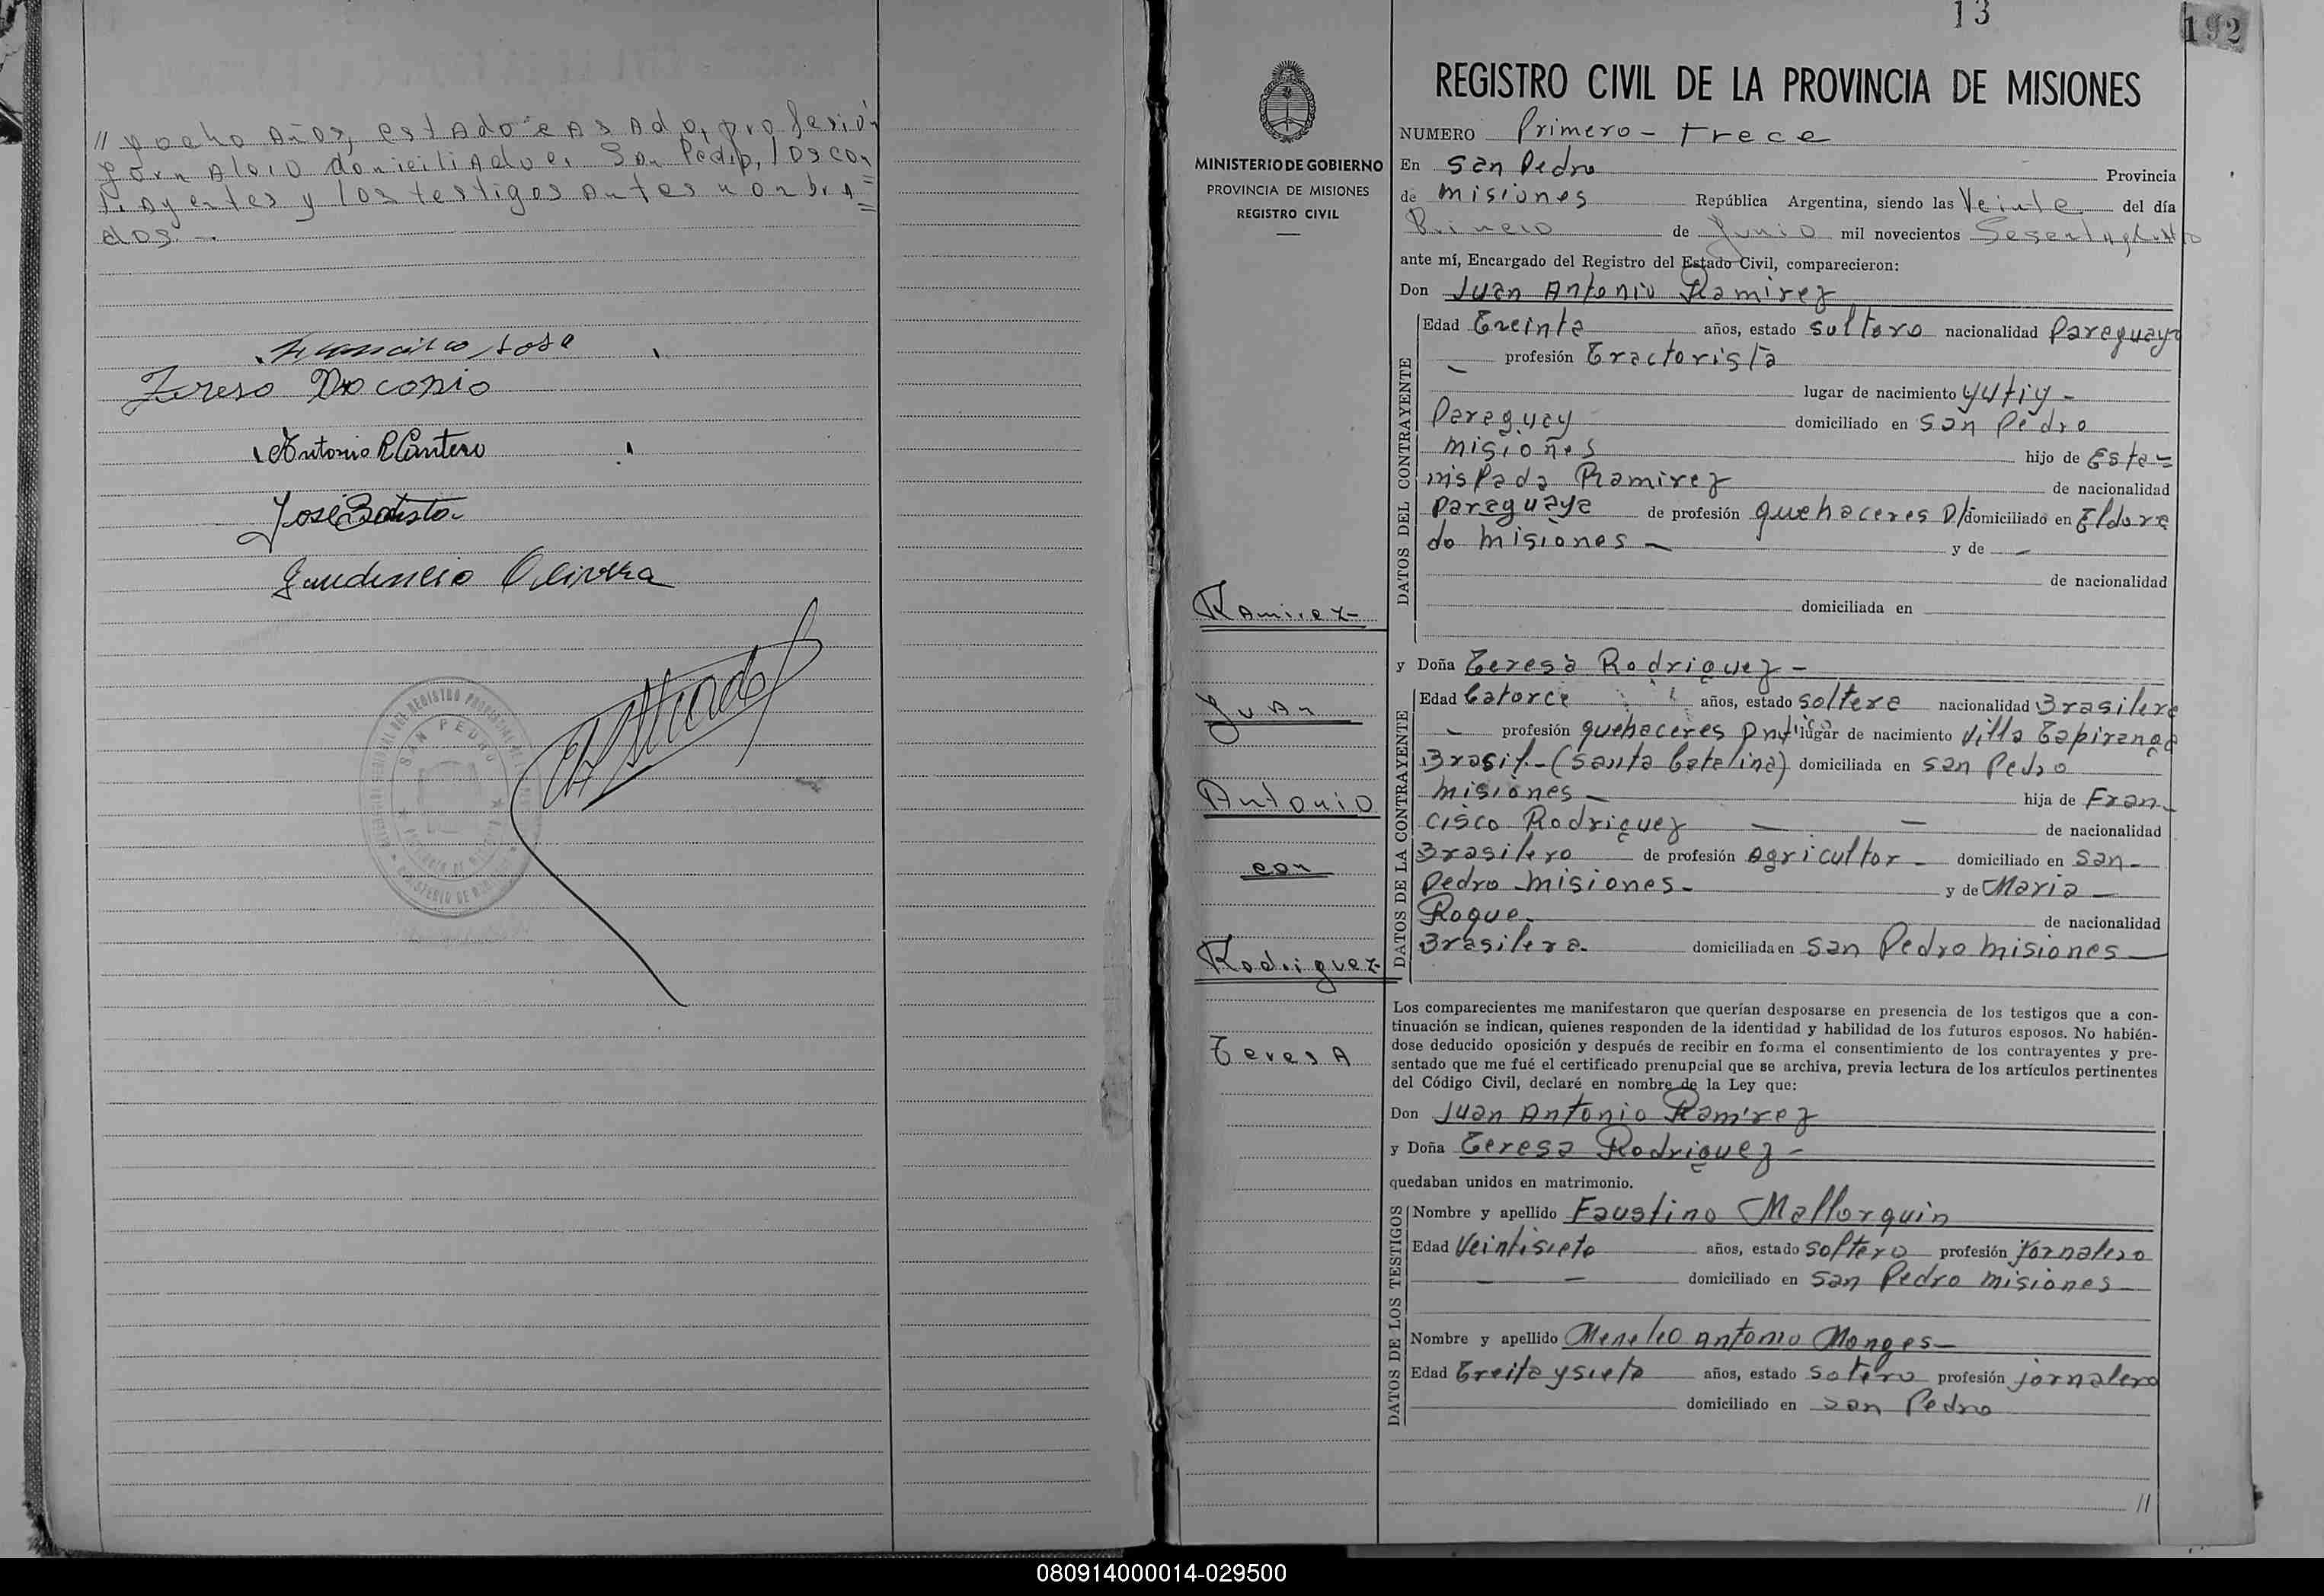 // yocho años, estado casado, profesión
jornalero domiciliado en San Pedro, los con=
trayentes y los testigos antes nombra=
dos.-
Francisco Sosa
Tereso Procopio
Antonio R Cantero
José Batista
Gaudencio Olivera
SAN PEDRO
13
192
MINISTERIO DE GOBIERNO
PROVINCIA DE MISIONES
REGISTRO CIVIL
Ramirez
Juan
Antonio
con
Rodriguez
Teresa
REGISTRO CIVIL DE LA PROVINCIA DE MISIONES
NUMERO Primero - trece
En San Pedro Provincia
de misiones República Argentina, siendo las Veinte del día
Primero de Junio mil novecientos
ante mí, Encargado del Registro del Estado Civil, comparecieron:
Don Juan Antonio Ramirez
DATOS DEL CONTRAYENTE
Edad Treinta años, estado soltero nacionalidad Paraguayo
- profesión Tractorista
lugar de nacimiento Yutiy -
Paraguay domiciliado en San Pedro
misiones hijo de Esta=
nislada Ramirez de nacionalidad
paraguaya de profesión quehaceres D/ domiciliado en Eldora
do misiones - y de -
de nacionalidad
domiciliada en
y Doña Teresa Rodriguez -
DATOS DE LA CONTRAYENTE
Edad Catorce años, estado soltera nacionalidad Brasilera
- profesión quehaceres lugar de nacimiento Villa Tapiranga
Brasil - (Santa Catalina) domiciliada en San Pedro
misiones - hija de Fran-
cisco Rodriguez - - de nacionalidad
Brasilero de profesión Agricultor - domiciliado en San -
Pedro - misiones - y de Maria -
Roque. de nacionalidad
Brasilera. domiciliada en San Pedro misiones -
Los comparecientes me manifestaron que querían desposarse en presencia de los testigos que a con-
tinuación se indican, quienes responden de la identidad y habilidad de los futuros esposos. No habién-
dose deducido oposición y después de recibir en forma el consentimiento de los contrayentes y pre-
sentado que me fué el certificado prenupcial que se archiva, previa lectura de los artículos pertinentes
del Código Civil, declaré en nombre de la Ley que:
Don Juan Antonio Ramirez
y Doña Teresa Rodriguez -
quedaban unidos en matrimonio.
DATOS DE LOS TESTIGOS
Nombre y apellido Faustino Mallorquin
Edad Veintisiete años, estado soltero profesión Jornalero
- - domiciliado en San Pedro misiones -
Nombre y apellido Meneleo Antonio Monges -
Edad Treita y siete años, estado sotero profesión jornalero
domiciliado en San Pedro
//
080914000014-029500